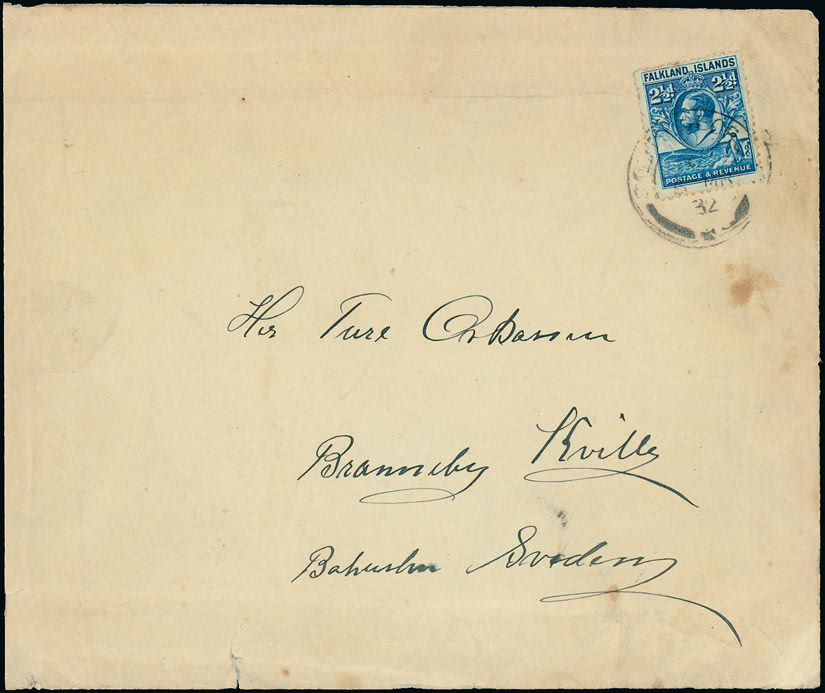 FALKLAND ISLANDS
2½d 2½d
POSTAGE & REVENUE
32
Her Ture
Branneby Kville
Bohuslen Sveden